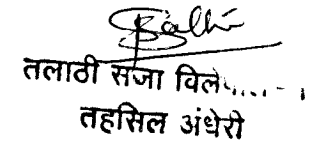 तलाठी सजा विले
तहसिल अंधेरी